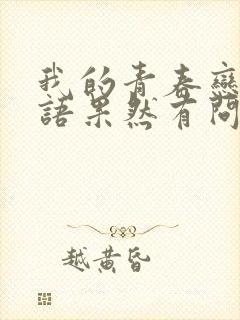 我的青春戀
語果然有問
越黄昏